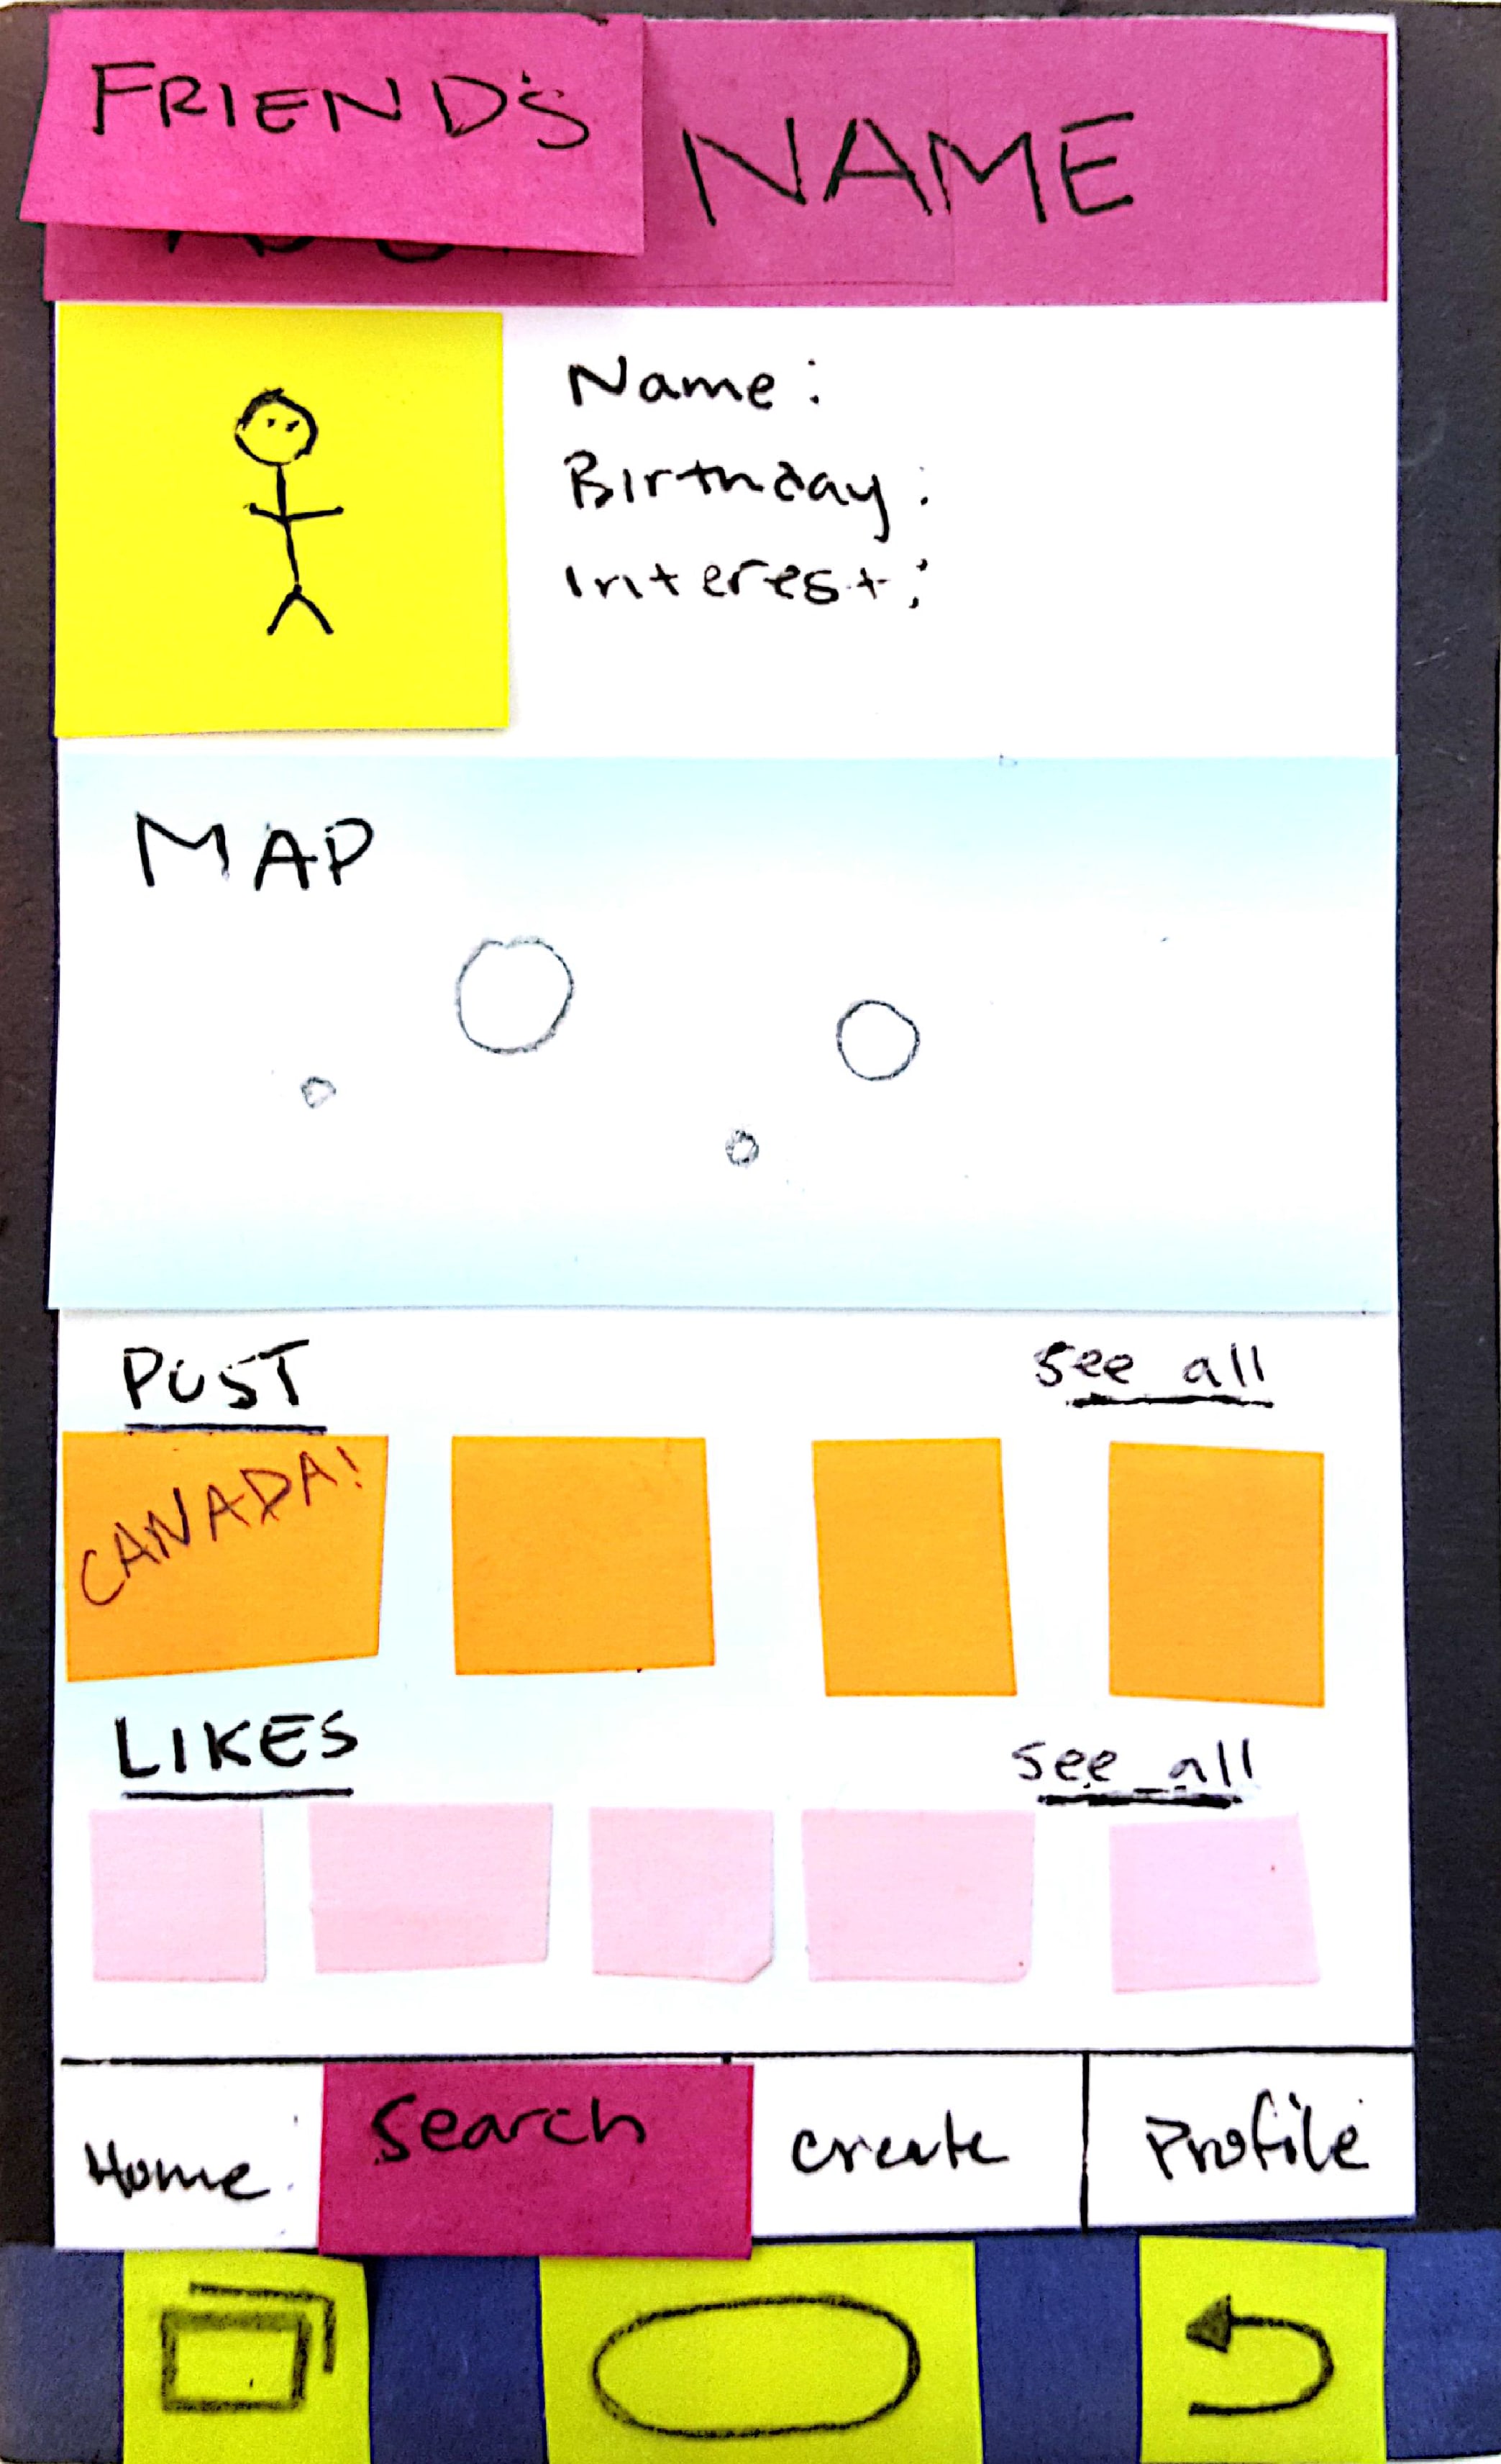 FRIEND'S NAME
Name :
Birthday :
Interest :
MAP
POST see all
CANADA!
LIKES see all
Home Search create Profile